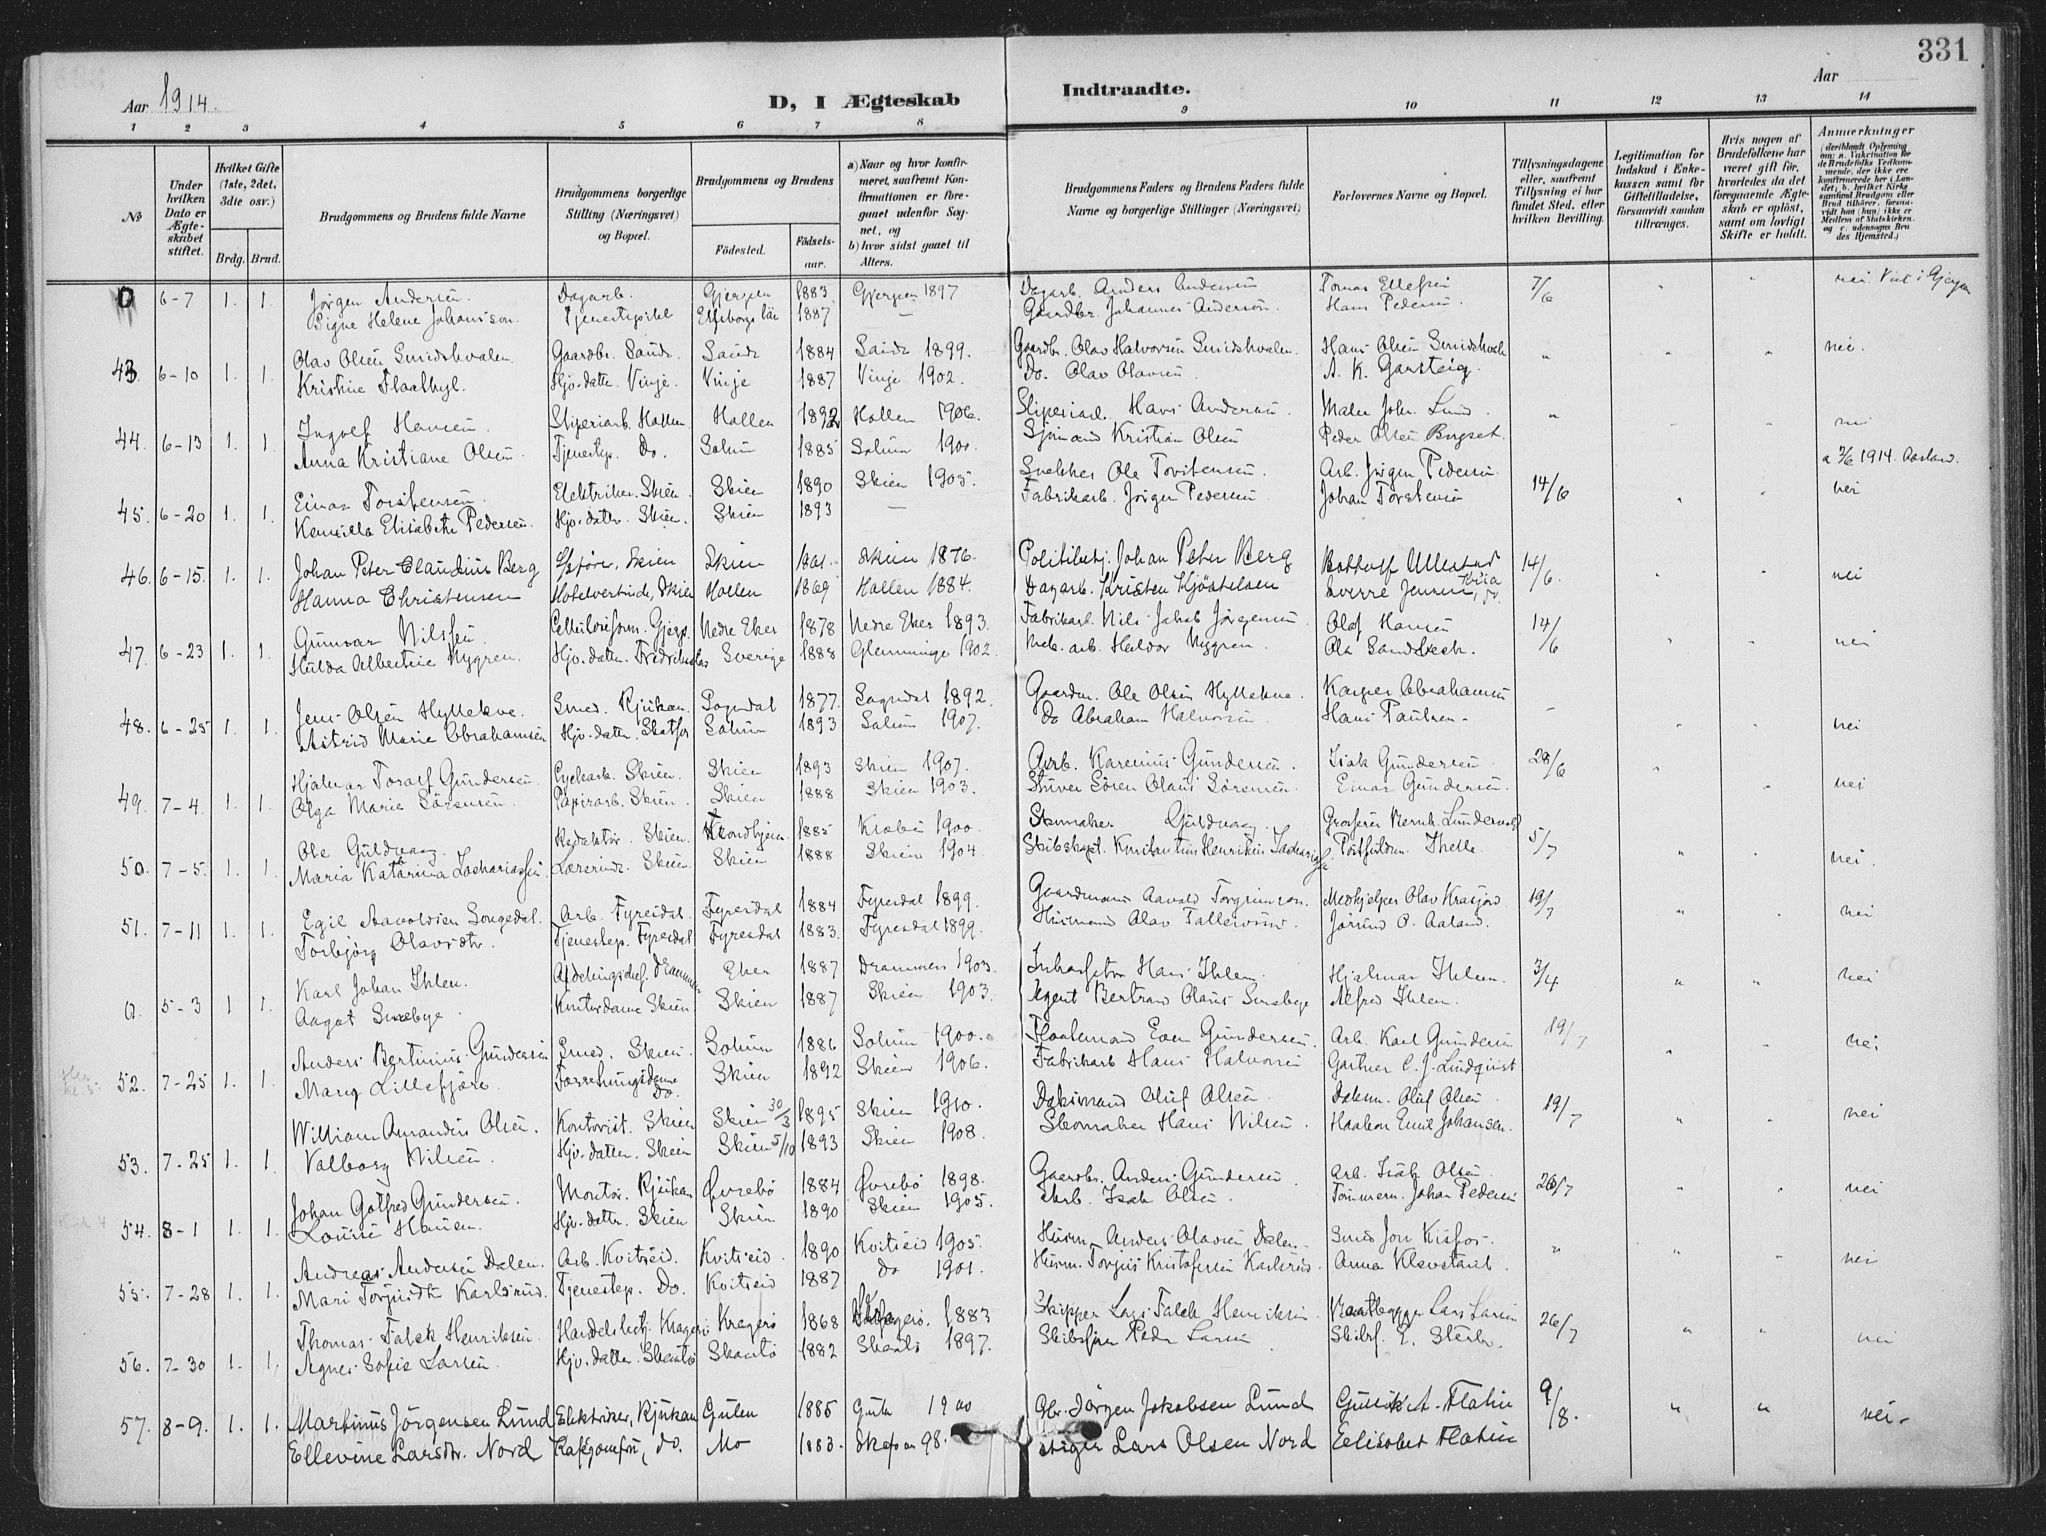 331
Aar 1914.
D, I Ægteskab Indtraadte.
Aar
1 2 3 4 5 6 7 8 9 10 11 12 13 14
No
Under hvilken Dato er Ægteskabet stiftet.
Hvilket Gifte (1ste, 2det, 3die osv.)
Brdg. Brud.
Brudgommens og Brudens fulde Navne
Brudgommens borgerlige Stilling (Næringsvei) og Bopæl.
Brudgommens og Brudens
Fødested. Fødselsaar.
a) Naar og hvor konfirmeret, saafremt Konfirmationen er foregaaet udenfor Sognet, og
b) hvor sidst gaaet til Alters.
Brudgommens Faders og Brudens Faders fulde Navne og borgerlige Stillinger (Næringsvei)
Forlovernes Navne og Bopæl.
Tillysningsdagene eller, saafremt Tillysning ei har fundet Sted, efter hvilken Bevilling.
Legitimation for Indskud i Enkekassen samt for Giftetilladelse, forsaavidt saadan tiltrænges.
Hvis nogen af Brudefolkene har været gift før, hvorledes da det foregaaende Ægteskab er opløst, samt om lovligt Skifte er holdt.
Anmærkninger
0 6-7 1. 1. Jørgen Andersen Dagarb. Gjerpen 1883 Gjerpen 1897 Dagarb. Anders Andersen Tomas Ellefsen 7/6 " " nei Viet i Gjerpen
Signe Helene Johansson. Tjenestepike Elfsborgs län 1887 — Gaardbr. Johannes Anderson. Hans Pedersen
43. 6-10 1. 1. Olav Olsen Smidshvalen. Gaardbr. Saude. Saude 1884 Saude 1899. Gaardbr. Olav Halvorsen Smidshvalen. Hans Olsen Smidshvale " " " nei.
Kristine Flaathyl. Hjv.datter Vinje. Vinje 1887 Vinje 1902. Do. Olav Olavsen A. K. Garsteig.
44. 6-13 1. 1. Ingolf Hansen Sliperiarb. Hollen Hollen 1892 Hollen 1906. Sliperiarb. Hans Andersen. Maler Johr. Lund. " " " nei
Anna Kristiane Olsen. Tjenestep. Do. Solum 1885 Solum 1900. Sjømand Kristian Olsen Peder Olsen Borgset.
a 3/6 1914. Aasland.
45. 6-20 1. 1. Einar Torstensen Elektriker. Skien. Skien 1890 Skien 1905. Snekker Ole Torstensen. Arb. Jørgen Pedersen 14/6 " " nei
Kamilla Elisabeth Pedersen. Hjv.datter. Skien. Skien 1893 — Fabrikarb. Jørgen Pedersen Johan Torstensen
46. 6-15. 1. 1. Johan Peter Claudius Berg Skien Skien 1861. Skien 1876. Politibetj. Johan Peter Berg Bottolf Ullestad 14/6. " " nei
Hanna Christensen Hotelvertinde, Skien Hollen 1869 Hollen 1884. Dagarb. Kristen Kjøstelsen Sverre Jensen
47. 6-23 1. 1. Gunnar Nilsen. Celluloseform. Gjerp. Nedre Eker 1878 Nedre Eker 1893. Fabrikarb. Nils Jakob Jørgensen. Olaf Hansen 14/6 " " nei
Hilda Albertine Nygren. Hjv.datter. Fredrikshald Sverige 1888 Glemminge 1902. Mek. arb. Heldor Nygren. Ole Sandbeck.
48. 6-25 1. 1. Jens Olsen Hyllekve. Smed. Rjukan. Sogndal 1877. Sogndal 1892. Gaardm. Ole Olsen Hyllekve. Kasper Abrahamsen – " " nei
Astrid Marie Abrahamsen Hjv.datter. Skotfos Solum 1893 Solum 1907. Do Abraham Halvorsen Hans Paulsen.
49. 7-4. 1. 1. Hjalmar Toralf Gundersen Cyclearb. Skien. Skien 1893 Skien 1907. Arb. Karenius Gundersen. Isak Gundersen. 28/6 " " nei
Olga Marie Sørensen. Papirarb. Skien. Skien 1888 Skien 1903. Skriver Søren Olaus Sørensen. Einar Gundersen.
50. 7-5. 1. 1. Ole Guldvaag. Redaktør. Skien. Trondhjem 1885 1900. Skomaker Guldvaag. Grosserer Bernh. Lundervold 5/7 " " nei.
Maria Katarina Zachariassen. Lærerinde. Skien. Skien 1888 Skien 1904. Skibskapt. Konstantius Henrikius Zachariassen Postfuldm. Thelle.
51. 7-11 1. 1. Egil Aavoldsen Songedal. Arb. Fyresdal. Fyresdal 1884 Fyresdal 1899. Gaardmand Aavold Torgrimson. Medhjelper Olav Krosjord 19/7 " " nei
Torbjørg Olavsdtr. Tjenestep. Fyresdal Fyresdal 1883. Fyresdal 1899. Husmand Olav Tallevsøn. Jørund O. Aaland.
0. 5-3 1 1. Karl Johan Ihlen. Afdelingschef. Drammen Eker 1887 Drammen 1903. Hans Ihlen. Hjalmar Ihlen. 3/4 " " nei
Aagot Snedbye. Kontordame Skien Skien 1887 Skien 1903. Agent Bertrand Olaus Snedbye Alfred Ihlen.
52. 7-25 1. 1. Anders Bertinius Gundersen Smed. Skien. Solum 1886 Solum 1900. Flaatemand Even Gundersen. Arb. Karl Gundersen 19/7 " " nei
Mary Lillefjære. Forretningsdame Do. Skien 1892 Skien 1906. Fabrikarb Hans Halvorsen Gartner C. J. Lindquist
53. 7-25 1. 1. William Amandus Olsen. Kontorist. Skien Skien 30/3 1895 Skien 1910. Olúf Olsen. Olúf Olsen 19/7 " " nei
Valborg Nilsen. Hjv.datter. Skien Skien 5/10 1893 Skien 1908. Skomaker Hans Nilsen. Haakon Emil Johansen.
54. 8-1 1. 1. Johan Gotfred Gundersen. Montør. Rjukan Øvrebø 1884 Øvrebø 1898. Gaardbr. Anders Gundersen Arb. Isak Olsen. 26/7 " " nei
Lovise Hansen. Hjv.datter. Skien Skien 1890 Skien 1905. Arb. Isak Olsen Tømmerm. Johan Pedersen
55. 7-28 1. 1. Andreas Andersen Dalen. Arb. Kvitseid. Kvitseid. 1890 Kvitseid 1905. Husm. Anders Olavsen Dalen. Smed Jon Kisfos. " " " nei
Mari Torjusdtr Karlsrud. Tjenestep. Do. Kvitseid 1887 do 1901. Husm. Torjus Kristofersen Karlsrud. Anna Klevstaul.
56. 7-30 1. 1. Thomas Falck Henriksen. Handelsbetj. Kragerø. Kragerø 1868 Kragerø. 1883 Skipper Lars Falck Henriksen Lars Larsen 26/7 " " nei
Agnes Sofie Larsen. Hjv.datter. Skaatø Skaatø 1882 Skaatø 1897. Skibsfører Peder Larsen Skibsf. E. Sterk.
57. 8-9. 1. 1. Martinus Jørgensen Lund Elektriker, Rjukan Gulen 1885 Gulen 1900 Gbr. Jørgen Jakobsen Lund Gullik A. Flatin 9/8. " " nei
Ellevine Larsdtr. Nord Kafejomfru, do. Mo 1883. 98. Stiger Lars Olsen Nord Elisabet Flatin